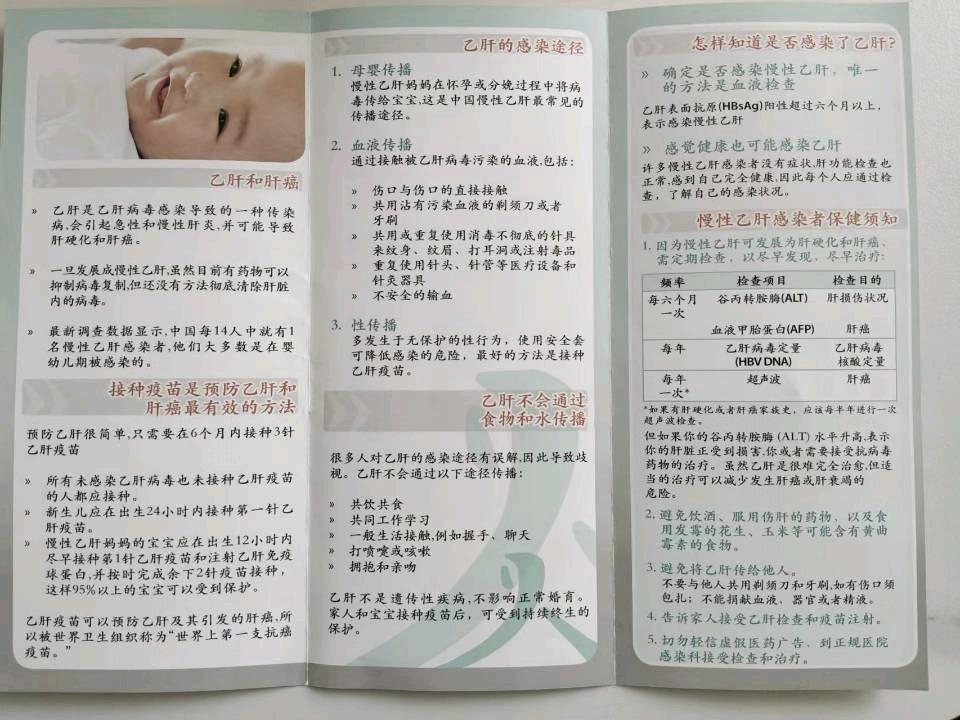 乙肝和肝癌
» 乙肝是乙肝病毒感染导致的一种传染
病,会引起急性和慢性肝炎,并可能导致
肝硬化和肝癌。
» 一旦发展成慢性乙肝,虽然目前有药物可以
抑制病毒复制,但还没有方法彻底清除肝脏
内的病毒。
» 最新调查数据显示,中国每14人中就有1
名慢性乙肝感染者,他们大多数是在婴
幼儿期被感染的。
接种疫苗是预防乙肝和
肝癌最有效的方法
预防乙肝很简单,只需要在6个月内接种3针
乙肝疫苗
» 所有未感染乙肝病毒也未接种乙肝疫苗
的人都应接种。
» 新生儿应在出生24小时内接种第一针乙
肝疫苗。
» 慢性乙肝妈妈的宝宝应在出生12小时内
尽早接种第1针乙肝疫苗和注射乙肝免疫
球蛋白,并按时完成余下2针疫苗接种,
这样95%以上的宝宝可以受到保护。
乙肝疫苗可以预防乙肝及其引发的肝癌,所
以被世界卫生组织称为“世界上第一支抗癌
疫苗。”
乙肝的感染途径
1. 母婴传播
慢性乙肝妈妈在怀孕或分娩过程中将病
毒传给宝宝,这是中国慢性乙肝最常见的
传播途径。
2. 血液传播
通过接触被乙肝病毒污染的血液,包括:
» 伤口与伤口的直接接触
» 共用沾有污染血液的剃须刀或者
牙刷
» 共用或重复使用消毒不彻底的针具
来纹身、纹眉、打耳洞或注射毒品
» 重复使用针头、针管等医疗设备和
针灸器具
» 不安全的输血
3. 性传播
多发生于无保护的性行为，使用安全套
可降低感染的危险，最好的方法是接种
乙肝疫苗。
乙肝不会通过
食物和水传播
很多人对乙肝的感染途径有误解,因此导致歧
视。乙肝不会通过以下途径传播:
» 共饮共食
» 共同工作学习
» 一般生活接触,例如握手、聊天
» 打喷嚏或咳嗽
» 拥抱和亲吻
乙肝不是遗传性疾病,不影响正常婚育。
家人和宝宝接种疫苗后，可受到持续终生的
保护。
怎样知道是否感染了乙肝?
» 确定是否感染慢性乙肝，唯一
的方法是血液检查
乙肝表面抗原(HBsAg)阳性超过六个月以上，
表示感染慢性乙肝
» 感觉健康也可能感染乙肝
许多慢性乙肝感染者没有症状,肝功能检查也
正常,感到自己完全健康,因此每个人应通过检
查，了解自己的感染状况。
慢性乙肝感染者保健须知
1. 因为慢性乙肝可发展为肝硬化和肝癌、
需定期检查，以尽早发现、尽早治疗:
频率 检查项目 检查目的
每六个月 谷丙转胺酶(ALT) 肝损伤状况
一次
血液甲胎蛋白(AFP) 肝癌
每年 乙肝病毒定量 乙肝病毒
(HBV DNA) 核酸定量
每年 超声波 肝癌
一次*
*如果有肝硬化或者肝癌家族史，应该每半年进行一次
超声波检查。
但如果你的谷丙转胺酶 (ALT) 水平升高,表示
你的肝脏正受到损害,你或者需要接受抗病毒
药物的治疗。虽然乙肝是很难完全治愈,但适
当的治疗可以减少发生肝癌或肝衰竭的
危险。
2. 避免饮酒、服用伤肝的药物，以及食
用发霉的花生、玉米等可能含有黄曲
霉素的食物。
3. 避免将乙肝传给他人。
不要与他人共用剃须刀和牙刷,如有伤口须
包扎；不能捐献血液、器官或者精液。
4. 告诉家人接受乙肝检查和疫苗注射。
5. 切勿轻信虚假医药广告，到正规医院
感染科接受检查和治疗。